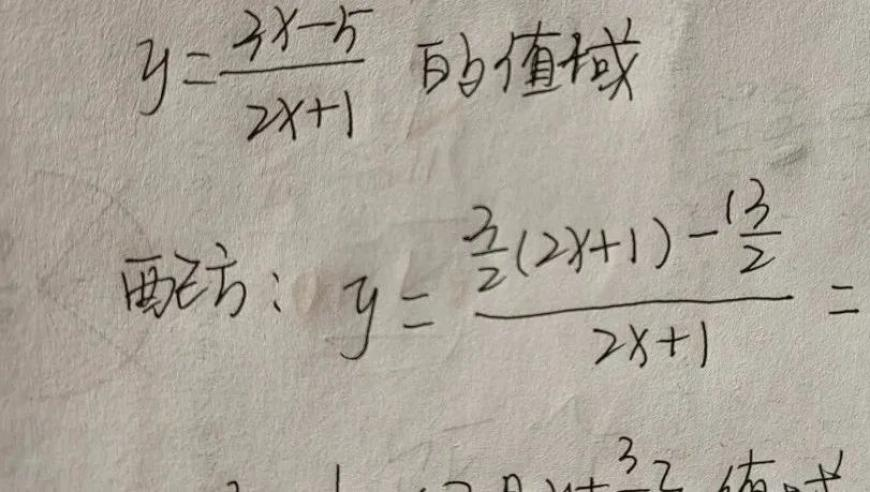 y=\frac{3x-5}{2x+1} 的值域
配方: y=\frac{\frac{3}{2}(2x+1)-\frac{13}{2}}{2x+1}=